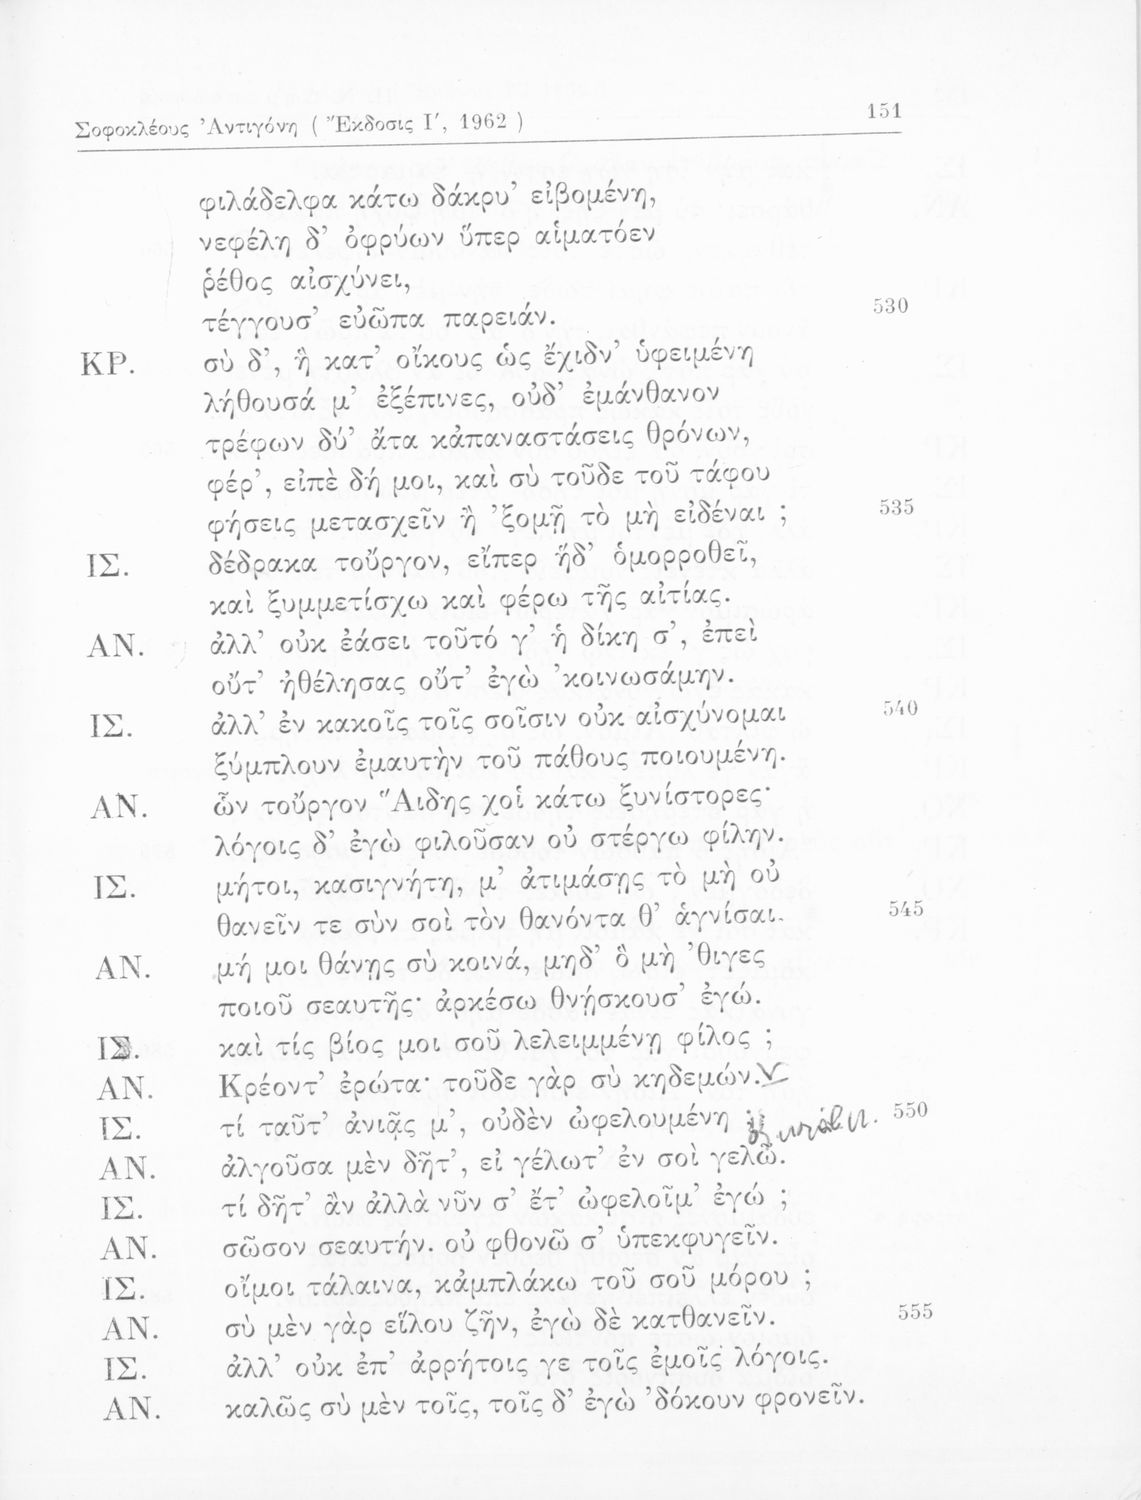 Σοφοκλέους Ἀντιγόνη ( Ἔκδοσις Ι', 1962 ) 151
φιλάδελφα κάτω δάκρυ' εἰβομένη,
νεφέλη δ' ὀφρύων ὕπερ αἱματόεν
ῥέθος αἰσχύνει,
τέγγουσ' εὐῶπα παρειάν. 530
ΚΡ. σὺ δ', ἣ κατ' οἴκους ὡς ἔχιδν' ὑφειμένη
λήθουσά μ' ἐξέπινες, οὐδ' ἐμάνθανον
τρέφων δύ' ἄτα κἀπαναστάσεις θρόνων,
φέρ', εἰπὲ δή μοι, καὶ σὺ τοῦδε τοῦ τάφου
φήσεις μετασχεῖν ἢ 'ξομῇ τὸ μὴ εἰδέναι ; 535
ΙΣ. δέδρακα τοὔργον, εἴπερ ἥδ' ὁμορροθεῖ,
καὶ ξυμμετίσχω καὶ φέρω τῆς αἰτίας.
ΑΝ. ἀλλ' οὐκ ἐάσει τοῦτό γ' ἡ δίκη σ', ἐπεὶ
οὔτ' ἠθέλησας οὔτ' ἐγὼ 'κοινωσάμην.
ΙΣ. ἀλλ' ἐν κακοῖς τοῖς σοῖσιν οὐκ αἰσχύνομαι 540
ξύμπλουν ἐμαυτὴν τοῦ πάθους ποιουμένη.
ΑΝ. ὧν τοὔργον Ἅιδης χοἰ κάτω ξυνίστορες·
λόγοις δ' ἐγὼ φιλοῦσαν οὐ στέργω φίλην.
ΙΣ. μήτοι, κασιγνήτη, μ' ἀτιμάσῃς τὸ μὴ οὐ
θανεῖν τε σὺν σοὶ τὸν θανόντα θ' ἁγνίσαι. 545
ΑΝ. μή μοι θάνῃς σὺ κοινά, μηδ' ὃ μὴ 'θιγες
ποιοῦ σεαυτῆς· ἀρκέσω θνῄσκουσ' ἐγώ.
ΙΣ. καὶ τίς βίος μοι σοῦ λελειμμένῃ φίλος ;
ΑΝ. Κρέοντ' ἐρώτα· τοῦδε γὰρ σὺ κηδεμών.
ΙΣ. τί ταῦτ' ἀνιᾷς μ', οὐδὲν ὠφελουμένη ; 550
ΑΝ. ἀλγοῦσα μὲν δῆτ', εἰ γέλωτ' ἐν σοὶ γελῶ.
ΙΣ. τί δῆτ' ἂν ἀλλὰ νῦν σ' ἔτ' ὠφελοῖμ' ἐγώ ;
ΑΝ. σῶσον σεαυτήν. οὐ φθονῶ σ' ὑπεκφυγεῖν.
ΙΣ. οἴμοι τάλαινα, κἀμπλάκω τοῦ σοῦ μόρου ;
ΑΝ. σὺ μὲν γὰρ εἵλου ζῆν, ἐγὼ δὲ κατθανεῖν. 555
ΙΣ. ἀλλ' οὐκ ἐπ' ἀρρήτοις γε τοῖς ἐμοῖς λόγοις.
ΑΝ. καλῶς σὺ μὲν τοῖς, τοῖς δ' ἐγὼ 'δόκουν φρονεῖν.